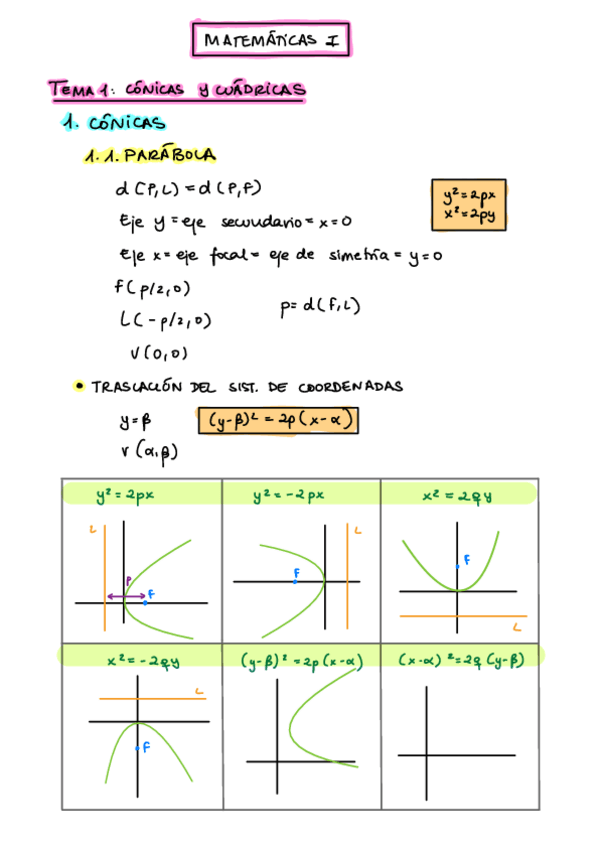 MATEMÁTICAS I
TEMA 1: CÓNICAS Y CUÁDRICAS
1. CÓNICAS
1.1. PARÁBOLA
d(P,L) = d(P,F)
y² = 2px
x² = 2py
Eje y = eje secundario = x=0
Eje x = eje focal = eje de simetría = y=0
F(p/2,0)
p = d(F,L)
L(-p/2,0)
V(0,0)
• TRASLACIÓN DEL SIST. DE COORDENADAS
y=β
(y-β)² = 2p(x-α)
V(α,β)
y² = 2px
y² = -2px
x² = 2qy
L
P
F
L
F
F
L
x² = -2qy
(y-β)² = 2p(x-α)
(x-α)² = 2q(y-β)
L
F